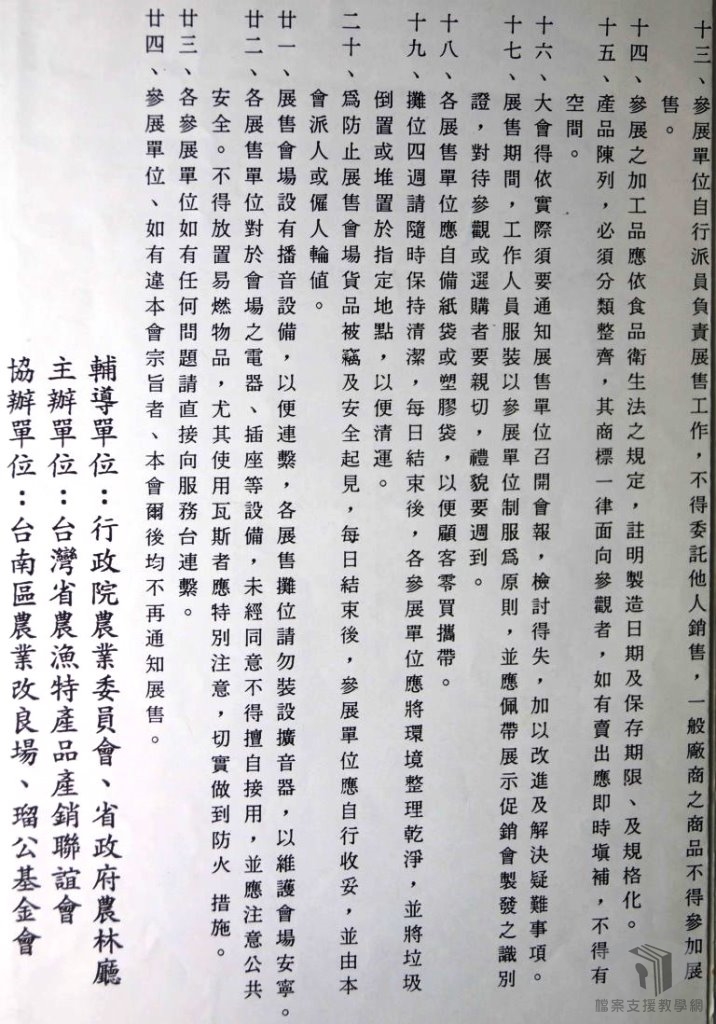 十三、參展單位自行派員負責展售工作，不得委託他人銷售，一般廠商之商品不得參加展
售。
十四、參展之加工品應依食品衛生法之規定，註明製造日期及保存期限、及規格化。
十五、產品陳列，必須分類整齊，其商標一律面向參觀者，如有賣出應即時塡補，不得有
空間。
十六、大會得依實際須要通知展售單位召開會報，檢討得失，加以改進及解決疑難事項。
十七、展售期間，工作人員服裝以參展單位制服爲原則，並應佩帶展示促銷會製發之識別
證，對待參觀或選購者要親切，禮貌要週到。
十八、各展售單位應自備紙袋或塑膠袋，以便顧客零買攜帶。
十九、攤位四週請隨時保持清潔，每日結束後，各參展單位應將環境整理乾淨，並將垃圾
倒置或堆置於指定地點，以便清運。
二十、爲防止展售會場貨品被竊及安全起見，每日結束後，參展單位應自行收妥，並由本
會派人或僱人輪值。
廿一、展售會場設有播音設備，以便連繫，各展售攤位請勿裝設擴音器，以維護會場安寧。
廿二、各展售單位對於會場之電器、插座等設備，未經同意不得擅自接用，並應注意公共
安全。不得放置易燃物品，尤其使用瓦斯者應特別注意，切實做到防火 措施。
廿三、各參展單位如有任何問題請直接向服務台連繫。
廿四、參展單位、如有違本會宗旨者、本會爾後均不再通知展售。
輔導單位：行政院農業委員會、省政府農林廳
主辦單位：台灣省農漁特產品產銷聯誼會
協辦單位：台南區農業改良場、瑠公基金會
檔案支援教學網